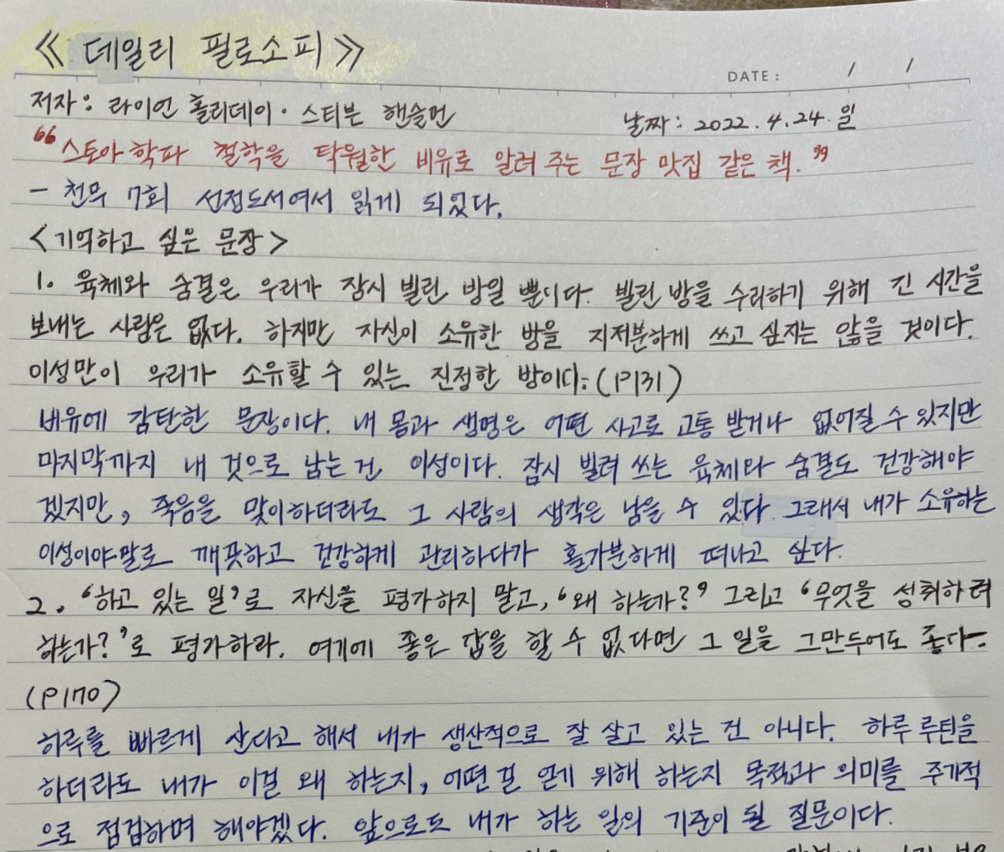 《 데일리 필로소피 》
DATE : / /
저자: 라이언 홀리데이 · 스티븐 핸슬먼 날짜: 2022. 4. 24. 일
“스토아 학파 철학을 탁월한 비유로 알려 주는 문장 맛집 같은 책.”
- 천무 7회 선정도서여서 읽게 되었다.
<기억하고 싶은 문장>
1. 육체와 숨결은 우리가 잠시 빌린 방일 뿐이다. 빌린 방을 수리하기 위해 긴 시간을
보내는 사람은 없다. 하지만 자신이 소유한 방을 지저분하게 쓰고 싶지는 않을 것이다.
이성만이 우리가 소유할 수 있는 진정한 방이다. (P131)
비유에 감탄한 문장이다. 내 몸과 생명은 어떤 사고로 고통 받거나 없어질 수 있지만
마지막까지 내 것으로 남는 건 이성이다. 잠시 빌려 쓰는 육체와 숨결도 건강해야
겠지만, 죽음을 맞이하더라도 그 사람의 생각은 남을 수 있다. 그래서 내가 소유하는
이성이야말로 깨끗하고 건강하게 관리하다가 홀가분하게 떠나고 싶다.
2. ‘하고 있는 일’로 자신을 평가하지 말고, ‘왜 하는가?’ 그리고 ‘무엇을 성취하려
하는가?’로 평가하라. 여기에 좋은 답을 할 수 없다면 그 일을 그만두어도 좋다.
(P170)
하루를 빠르게 산다고 해서 내가 생산적으로 잘 살고 있는 건 아니다. 하루 루틴을
하더라도 내가 이걸 왜 하는지, 어떤 걸 얻기 위해 하는지 목적과 의미를 주기적
으로 점검하며 해야겠다. 앞으로도 내가 하는 일의 기준이 될 질문이다.